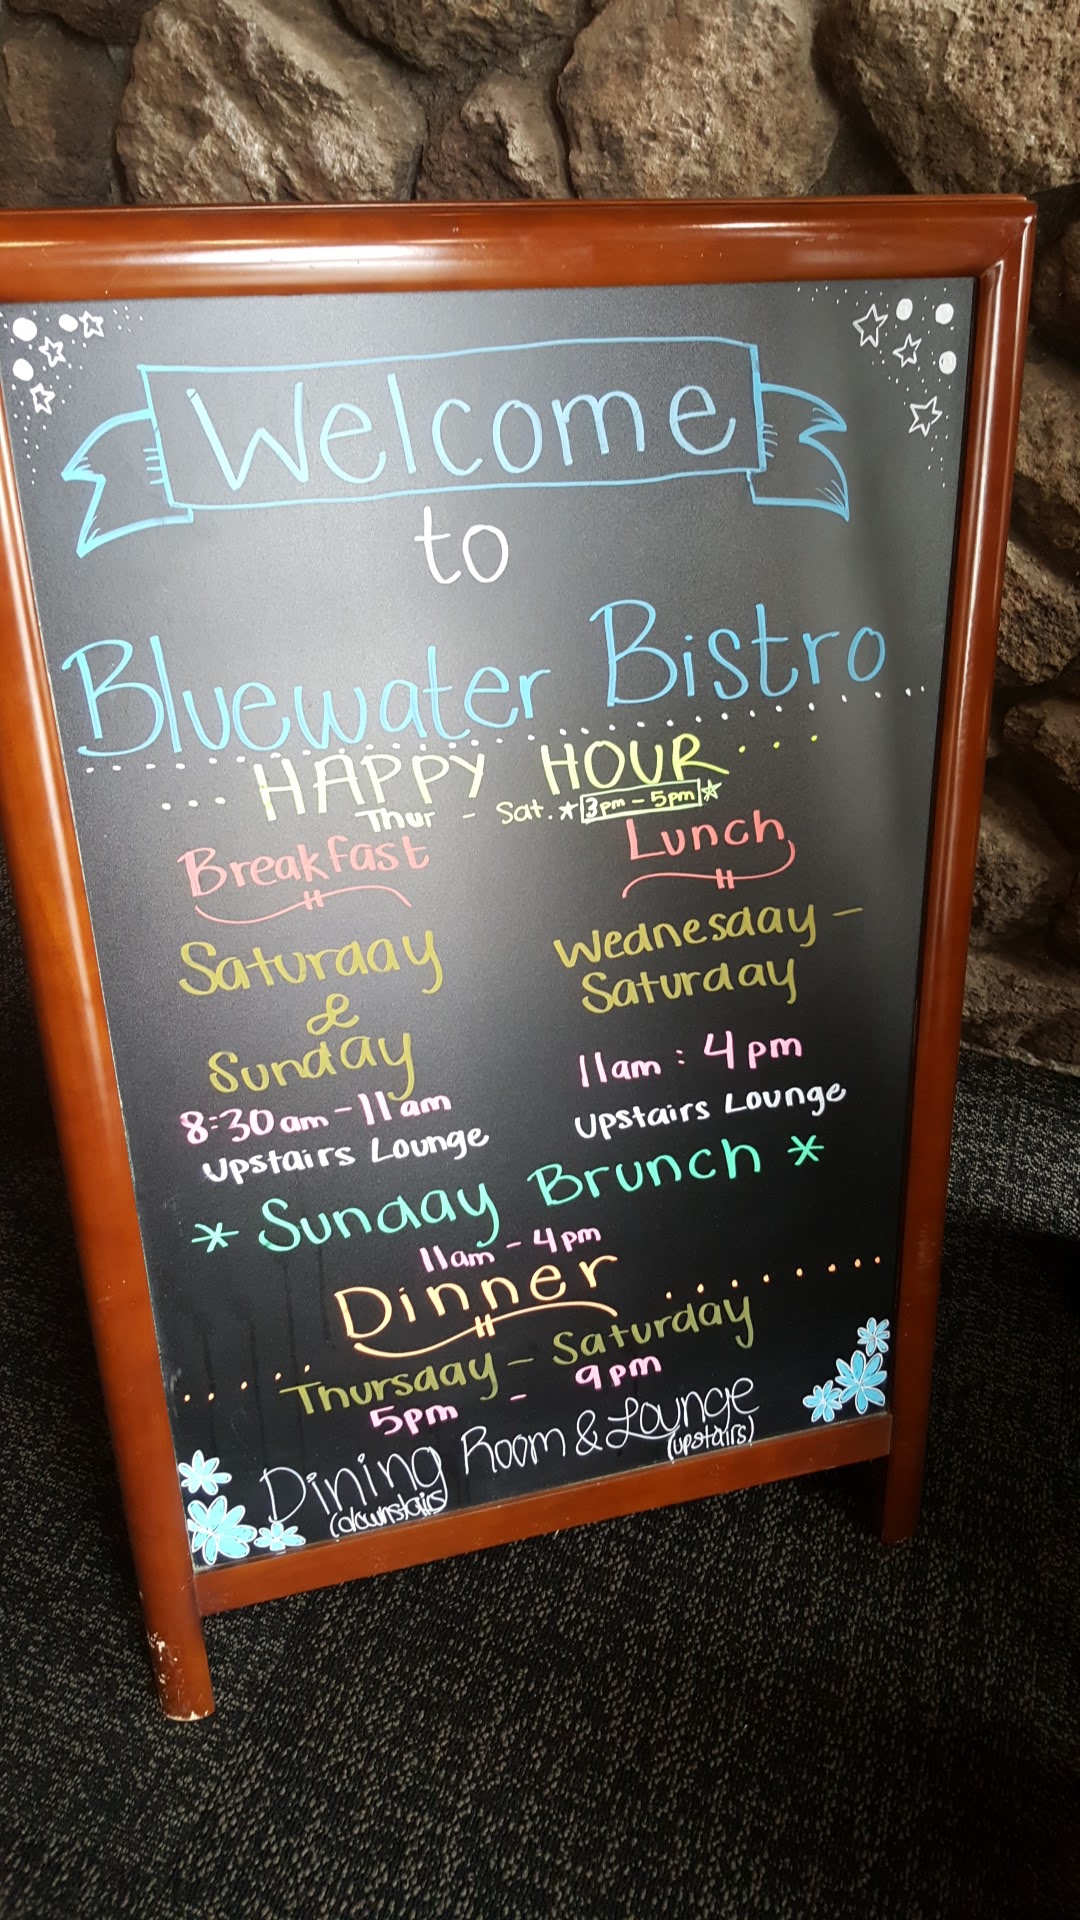 Welcome
to
Bluewater Bistro
... HAPPY HOUR ...
Thur - Sat. *3pm - 5pm*
Breakfast
Saturday
&
Sunday
8:30am - 11am
Upstairs Lounge
Lunch
Wednesday -
Saturday
11am : 4pm
Upstairs Lounge
* Sunday Brunch *
11am - 4pm
Dinner
Thursday - Saturday
5pm - 9pm
Dining Room & Lounge
(downstairs) (upstairs)